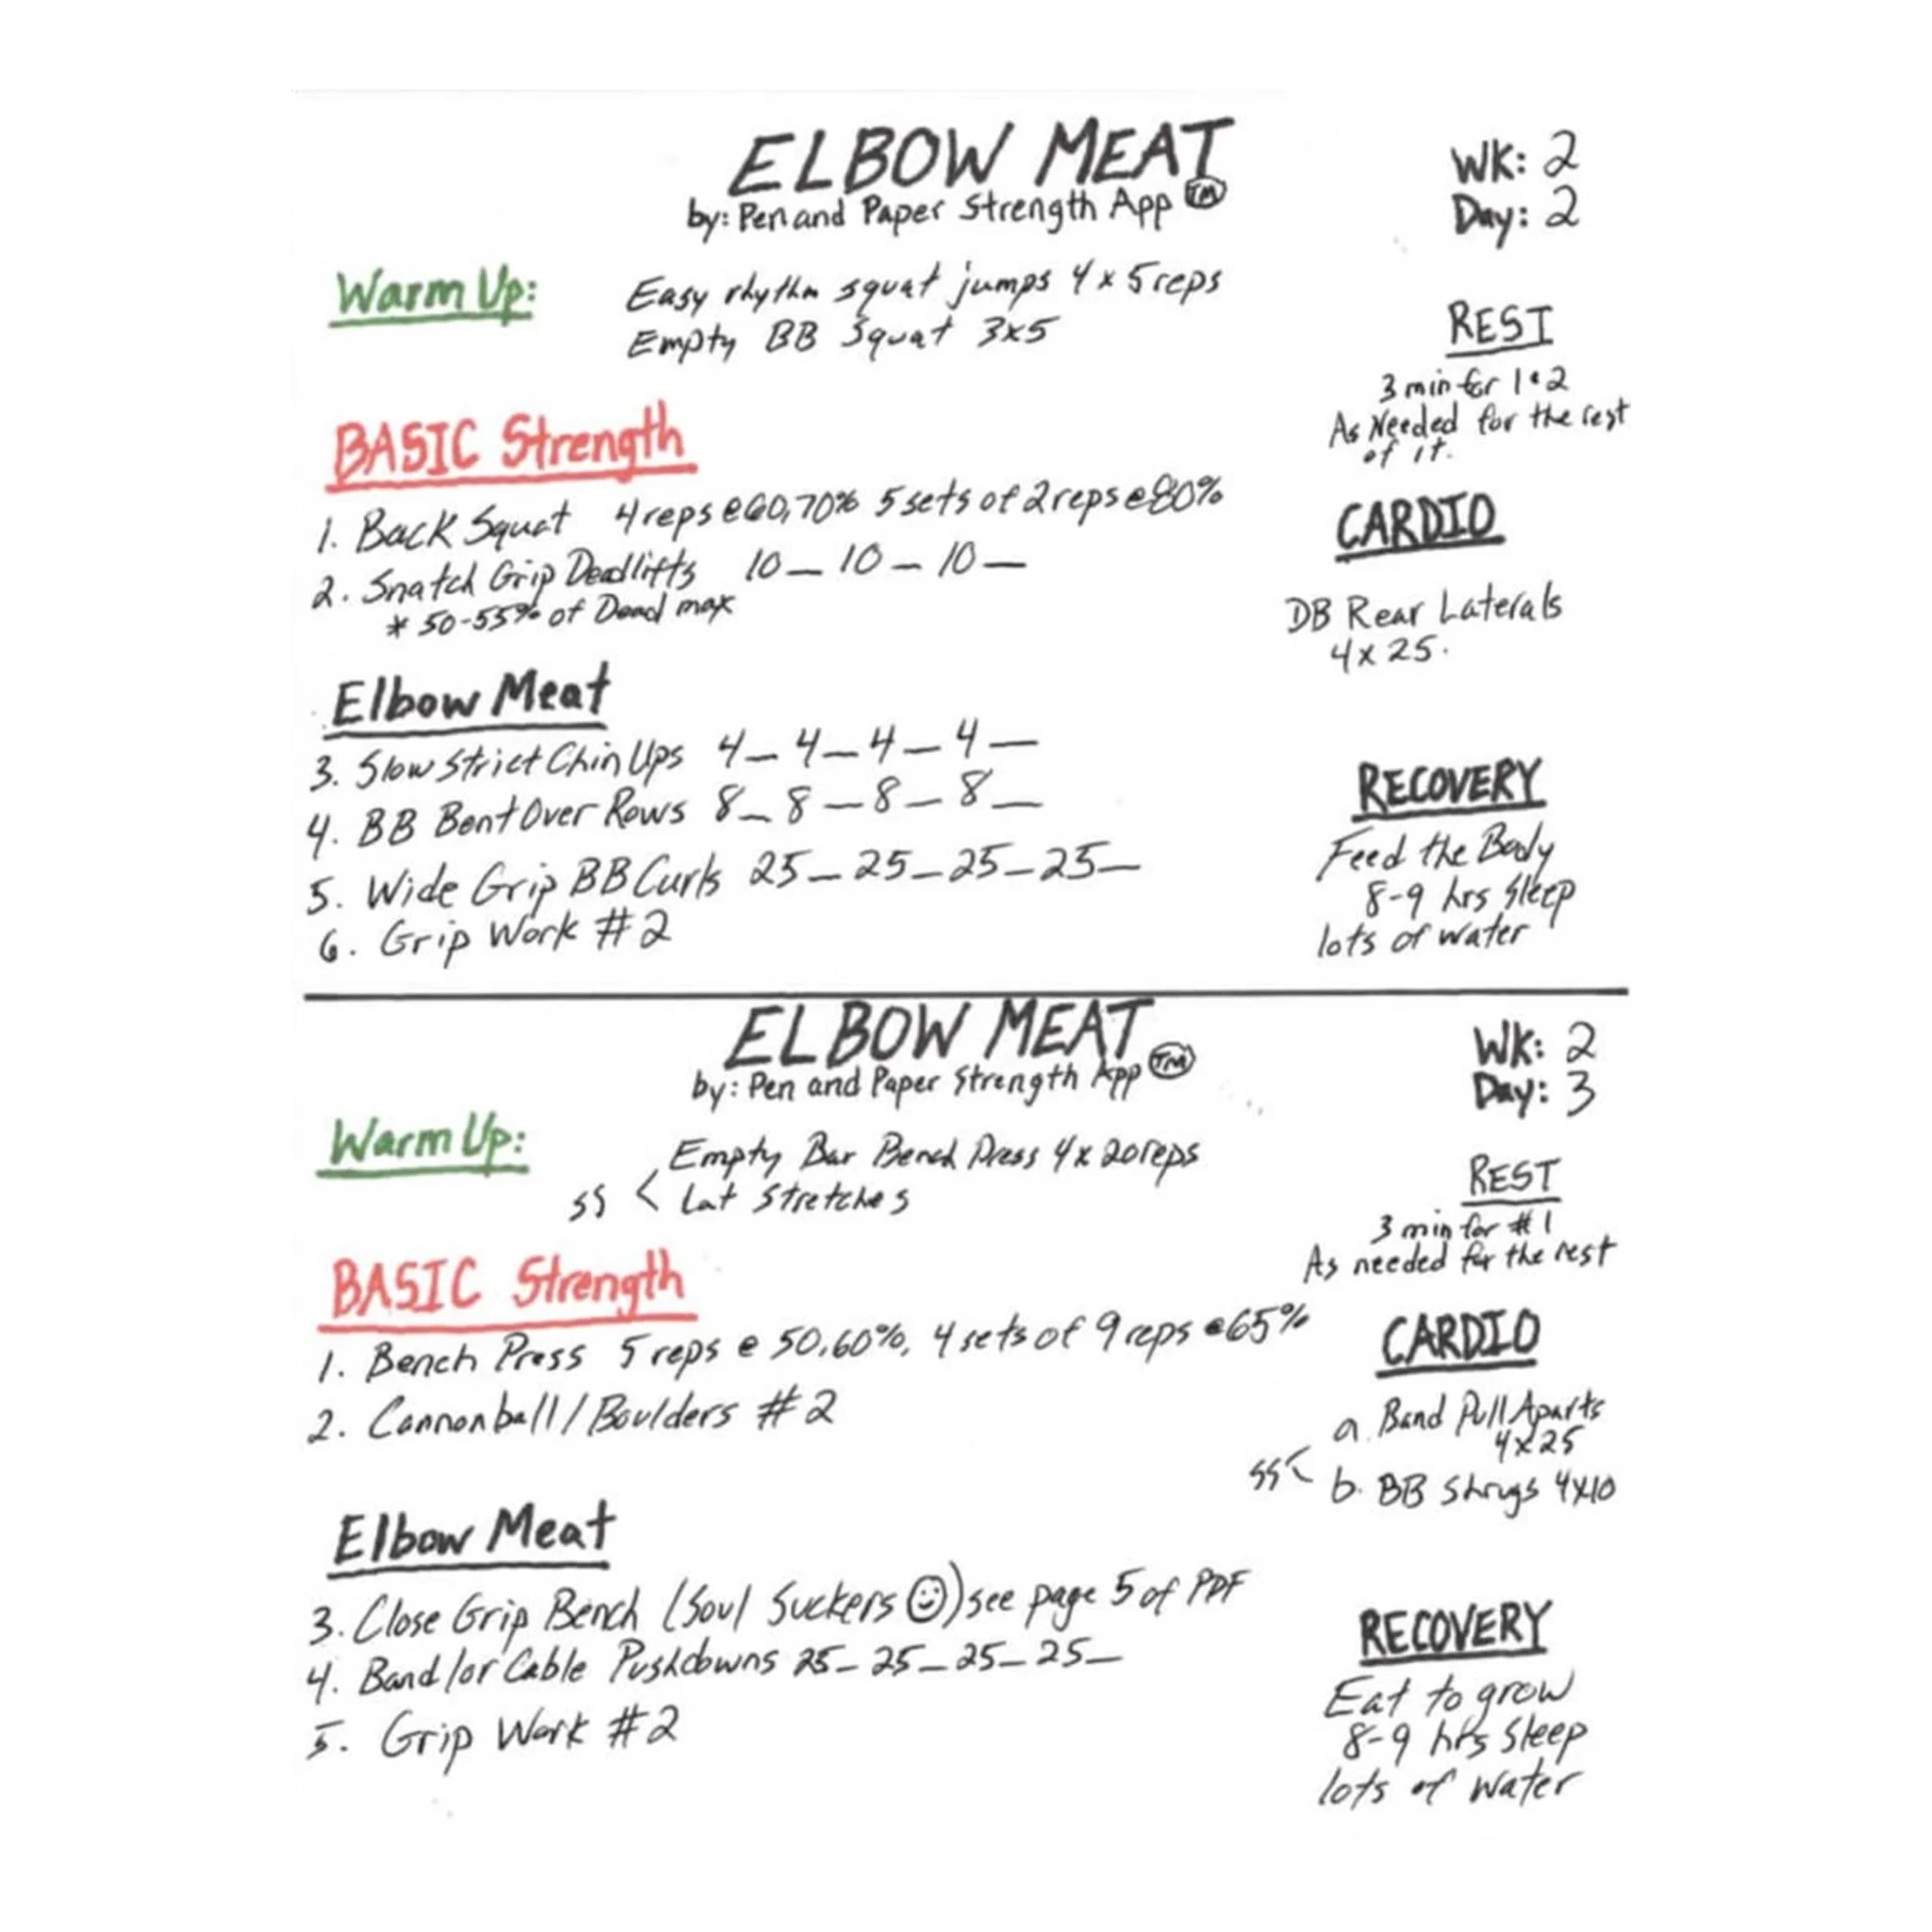 ELBOW MEAT
by: Pen and Paper Strength App TM
WK: 2
Day: 2
Warm Up:
Easy rhythm squat jumps 4 x 5 reps
Empty BB Squat 3x5
REST
3 min for 1 & 2
As Needed for the rest
of it.
BASIC Strength
1. Back Squat 4 reps @ 60,70% 5 sets of 2 reps @ 80%
2. Snatch Grip Deadlifts 10_ 10_ 10_
* 50-55% of Dead max
CARDIO
DB Rear Laterals
4 x 25.
Elbow Meat
3. Slow Strict Chin Ups 4_ 4_ 4_ 4_
4. BB Bent Over Rows 8_ 8_ 8_ 8_
5. Wide Grip BB Curls 25_ 25_ 25_ 25_
6. Grip Work #2
RECOVERY
Feed the Body
8-9 hrs Sleep
lots of water
ELBOW MEAT
by: Pen and Paper Strength App TM
WK: 2
Day: 3
Warm Up:
Empty Bar Bench Press 4 x 20 reps
SS < Lat Stretches
REST
3 min for #1
As needed for the rest
BASIC Strength
1. Bench Press 5 reps @ 50,60%, 4 sets of 9 reps @ 65%
2. Cannonball/Boulders #2
CARDIO
a. Band Pull Aparts
4x25
SS < b. BB Shrugs 4x10
Elbow Meat
3. Close Grip Bench (Soul Suckers ☺) see page 5 of PDF
4. Band/or Cable Pushdowns 25_ 25_ 25_ 25_
5. Grip Work #2
RECOVERY
Eat to grow
8-9 hrs Sleep
lots of water